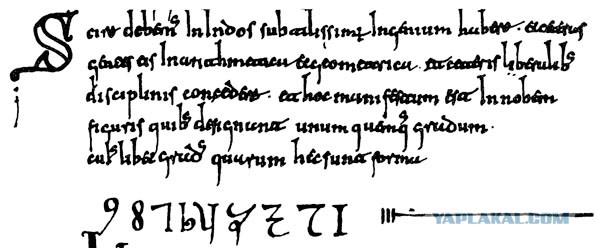 Scire debemus in Indos subtilissimum Ingenium habere. et ceteras
gentes eis In arithmetica et geometrica et ceteris liberalibus
disciplinis concedere. et hoc manifestum est In nobem
figuris quibus designant unum quemque gradum.
cuiuslibet gradus quarum hec sunt forma
9 8 7 6 5 4 3 2 1
YAPLAKAL.COM